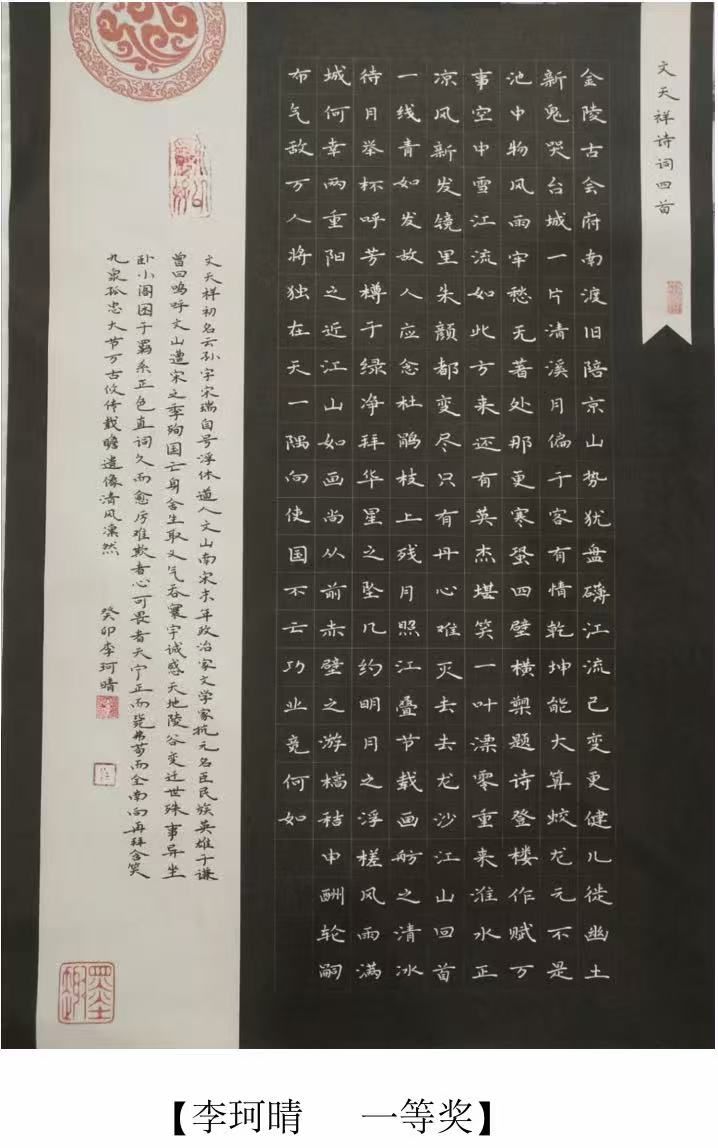 文天祥诗词四首
金陵古会府南渡旧陪京山势犹盘礴江流已变更健儿徙幽土
新鬼哭台城一片清溪月偏于客有情乾坤能大算蛟龙元不是
池中物风雨牢愁无著处那更寒蛩四壁横槊题诗登楼作赋万
事空中雪江流如此方来还有英杰堪笑一叶漂零重来淮水正
凉风新发镜里朱颜都变尽只有丹心难灭去去龙沙江山回首
一线青如发故人应念杜鹃枝上残月照江叠节载画舫之清冰
待月举杯呼芳樽于绿净拜华星之坠几约明月之浮槎风雨满
城何幸两重阳之近江山如画尚从前赤壁之游槁秸申酬轮嗣
布气敌万人将独在天一隅向使国不亡功业竟何如
文天祥初名云孙字宋瑞自号浮休道人文山南宋末年政治家文学家抗元名臣民族英雄于谦
曾曰呜呼文山遭宋之季殉国亡身舍生取义气吞寰宇诚感天地陵谷变迁世殊事异坐
卧小阁困于羁系正色直词久而愈厉难欺者心可畏者天宁正而毙弗苟而全南向再拜含笑
九泉孤忠大节万古攸传载瞻遗像清风凛然 癸卯李珂晴
墨趣
【李珂晴 一等奖】